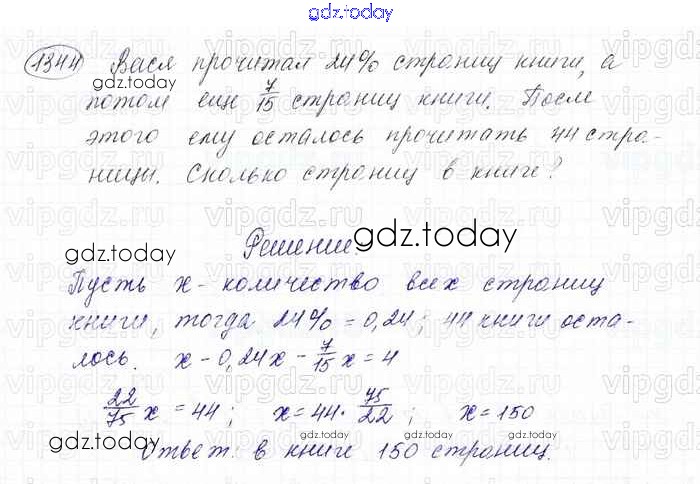 gdz.today
1344 Вася прочитал 24% страниц книги, а
потом ещё 7/15 страниц книги. После
этого ему осталось прочитать 44 стра-
ницы. Сколько страниц в книге?
gdz.today
gdz.today
Решение:
gdz.today
gdz.today
Пусть x - количество всех страниц
книги, тогда 24% = 0,24; 44 книги оста-
лось. x - 0,24x - 7/15 x = 4
gdz.today
22/75 x = 44; x = 44 · 75/22; x = 150
gdz.today
gdz.today
gdz.today
Ответ: в книге 150 страниц.
gdz.today